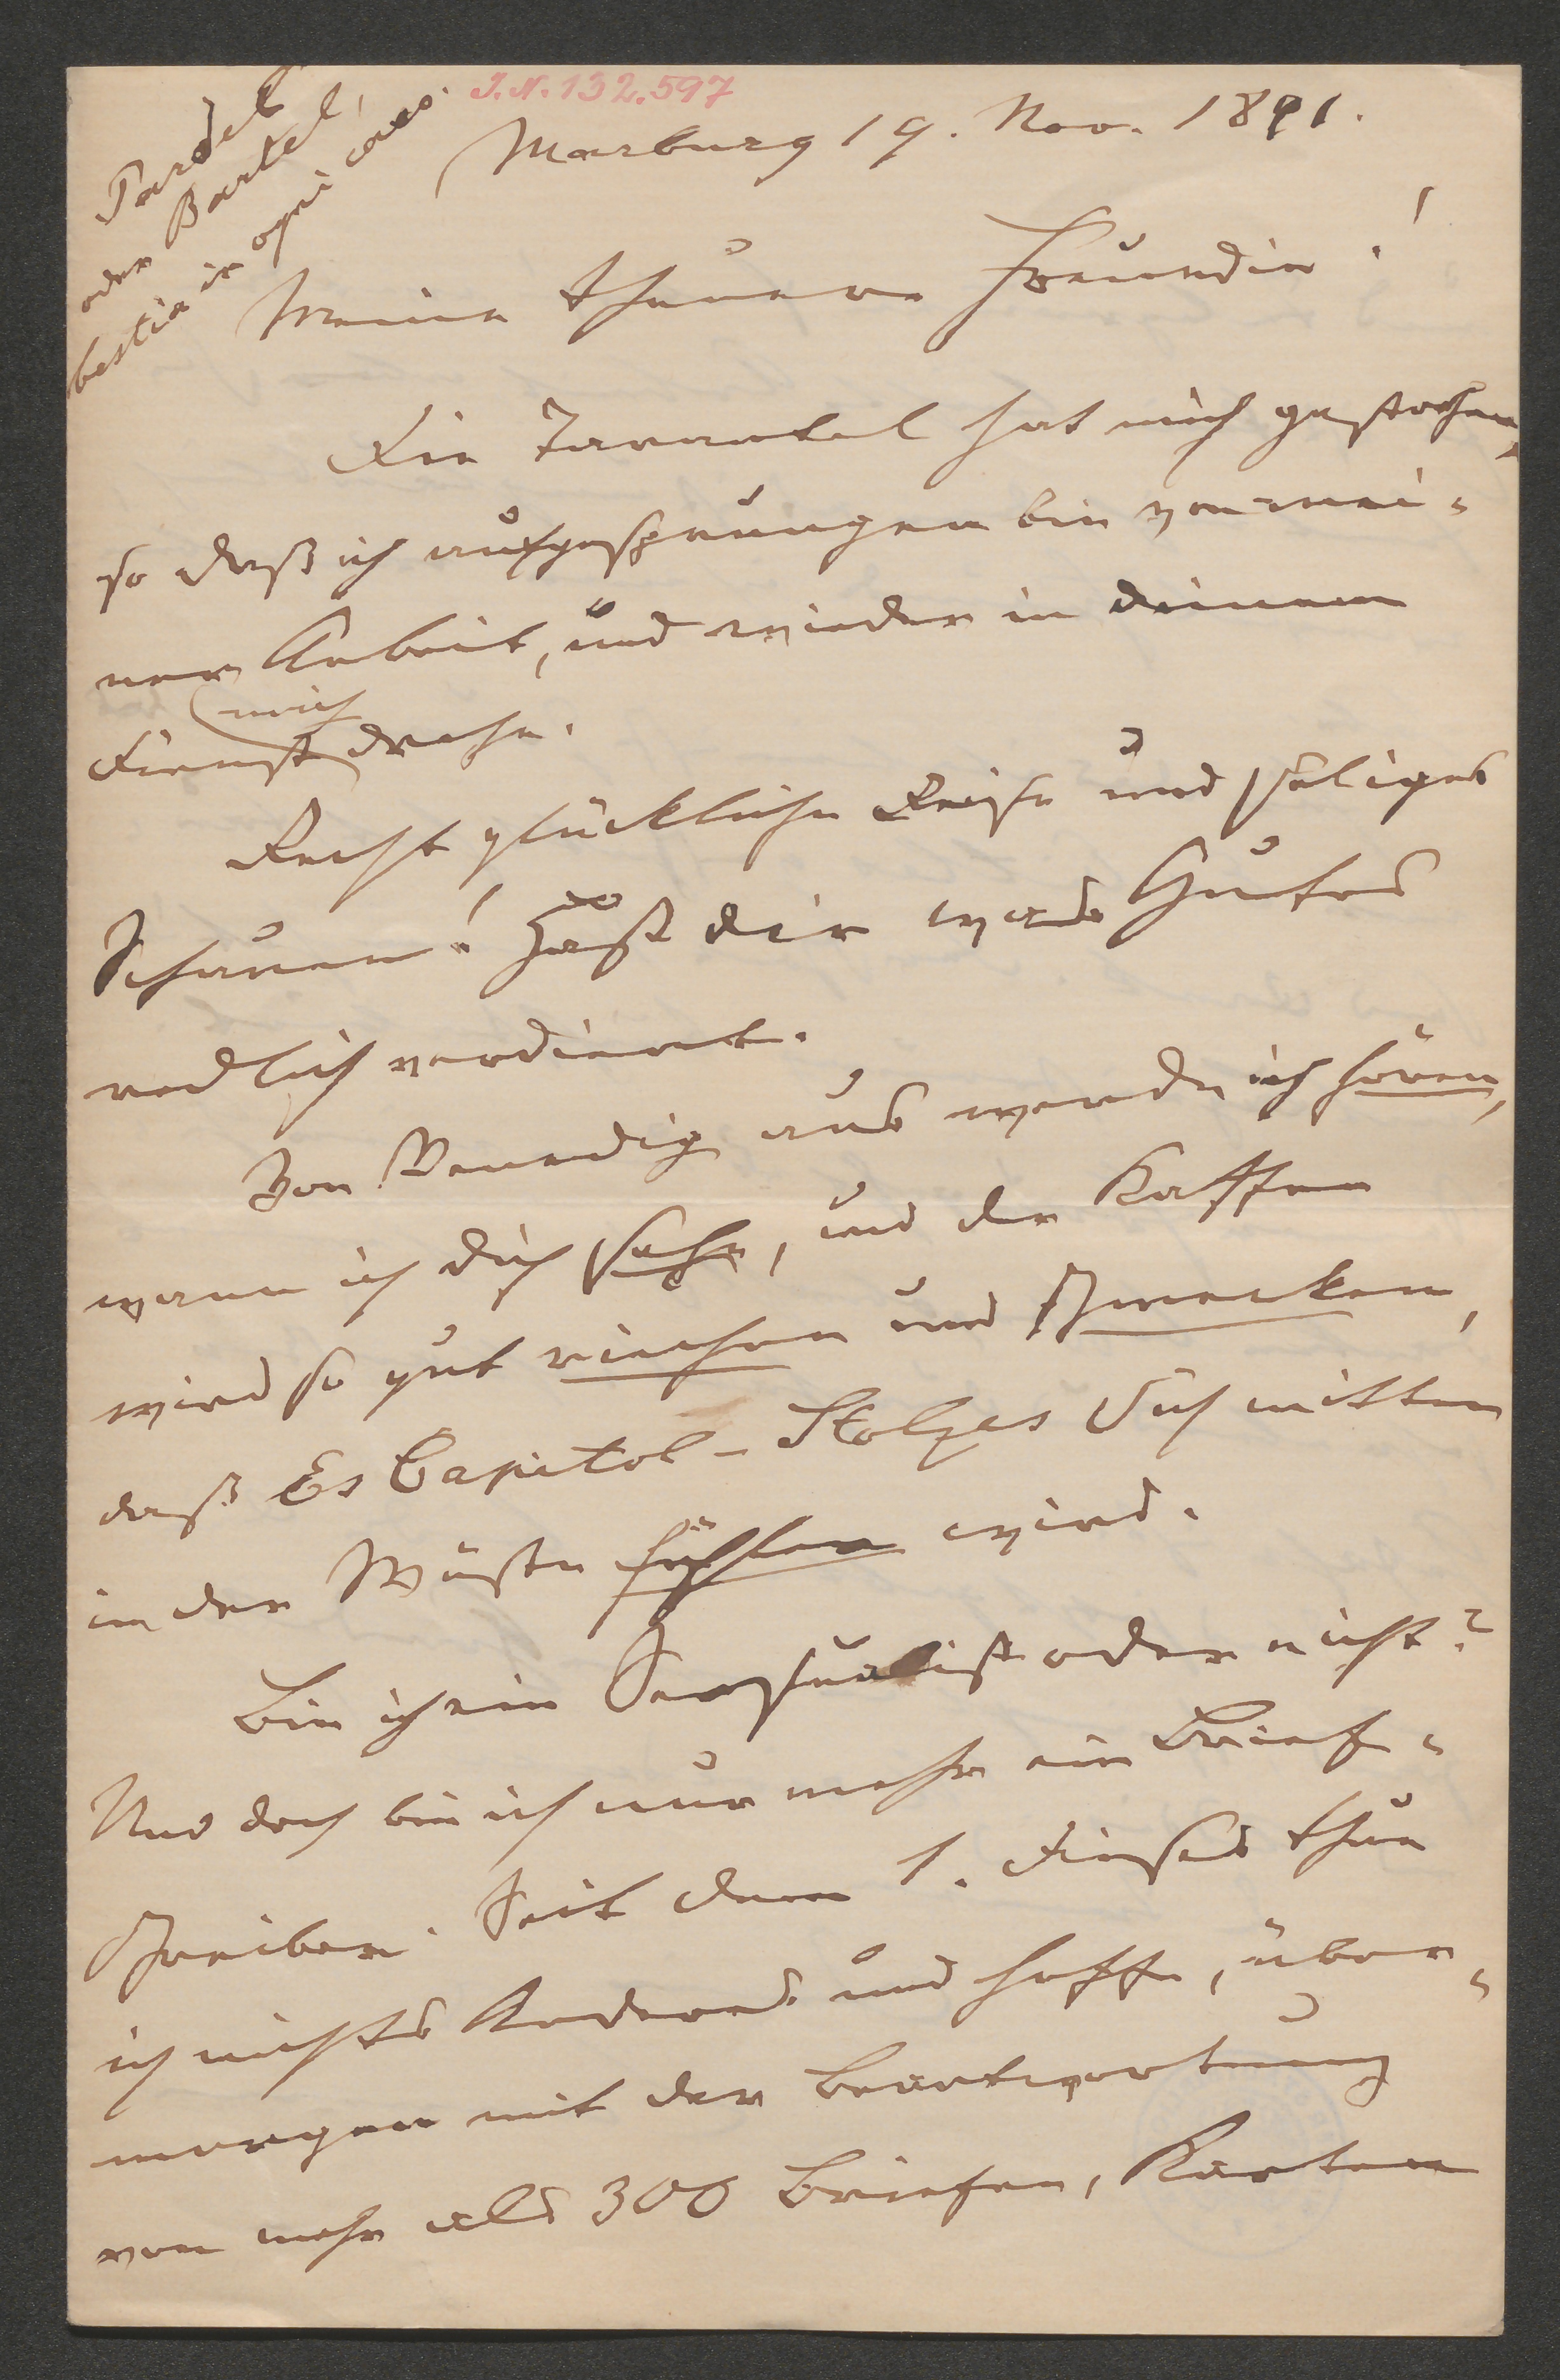 J.N. 132.597
Pardel
oder Bartel,
bestia in ogni caso.
Marburg 19. Nov. 1891.
Meine theuere Freundin!
Die Tarantel hat mich gestochen,
so daß ich aufgesprungen bin von mei-
ner Arbeit, und wieder in deinem
mich
Dienst drehe.
Recht glückliche Reise und seliges
Schauen! Hast dir was Gutes
redlich verdient.
Von Venedig aus werde ich hören,
wann ich dich sehe, und der Kaffee
wird so gut riechen und schmecken,
daß Es Capitol-Stolzes Dich mitten
in der Wüste fühlen wird.
Bin ich ein Sensualist oder nicht?
Und doch bin ich nur mehr ein Brief-
schreiber. Seit dem 1. dieses thue
ich nichts Anderes und hoffe, über-
morgen mit der Beantwortung
von mehr als 300 Briefen, Karten